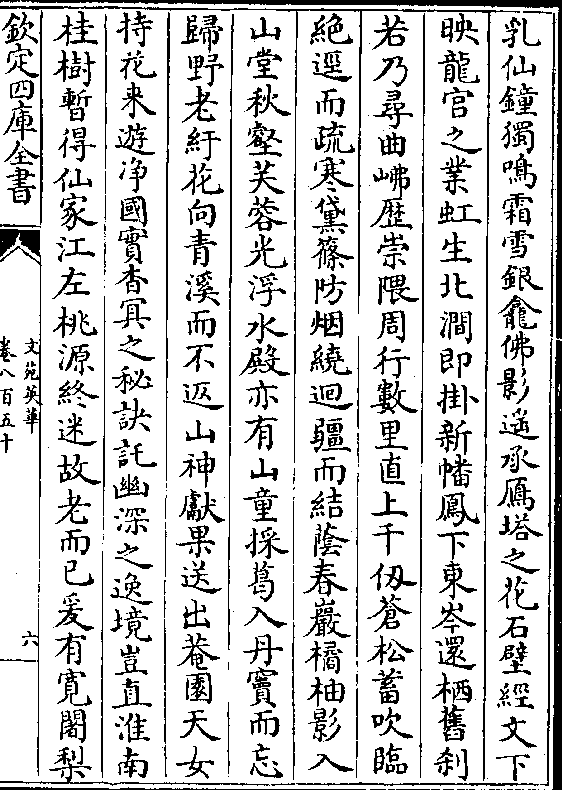 乳仙鐘獨鳴霜雪銀龕佛影遥承鴈塔之花石壁經文下
映龍宫之業虹生北澗即掛新幡鳳下東岑還栖舊刹
若乃尋曲岪歴崇隈周行數里直上千仭蒼松蓄吹臨
絶逕而疏寒黛篠防烟繞迴疆而結蔭春巖橘柚影入
山堂秋壑芙蓉光浮水殿亦有山童採葛入丹竇而忘
歸野老紆花向青溪而不返山神獻果送出菴園天女
持花来遊净國實杳冥之秘訣託幽深之逸境豈直淮南
桂樹暫得仙家江左桃源終迷故老而已爰有寛闍梨
欽定四庫全書
文苑英華
卷八百五十
六